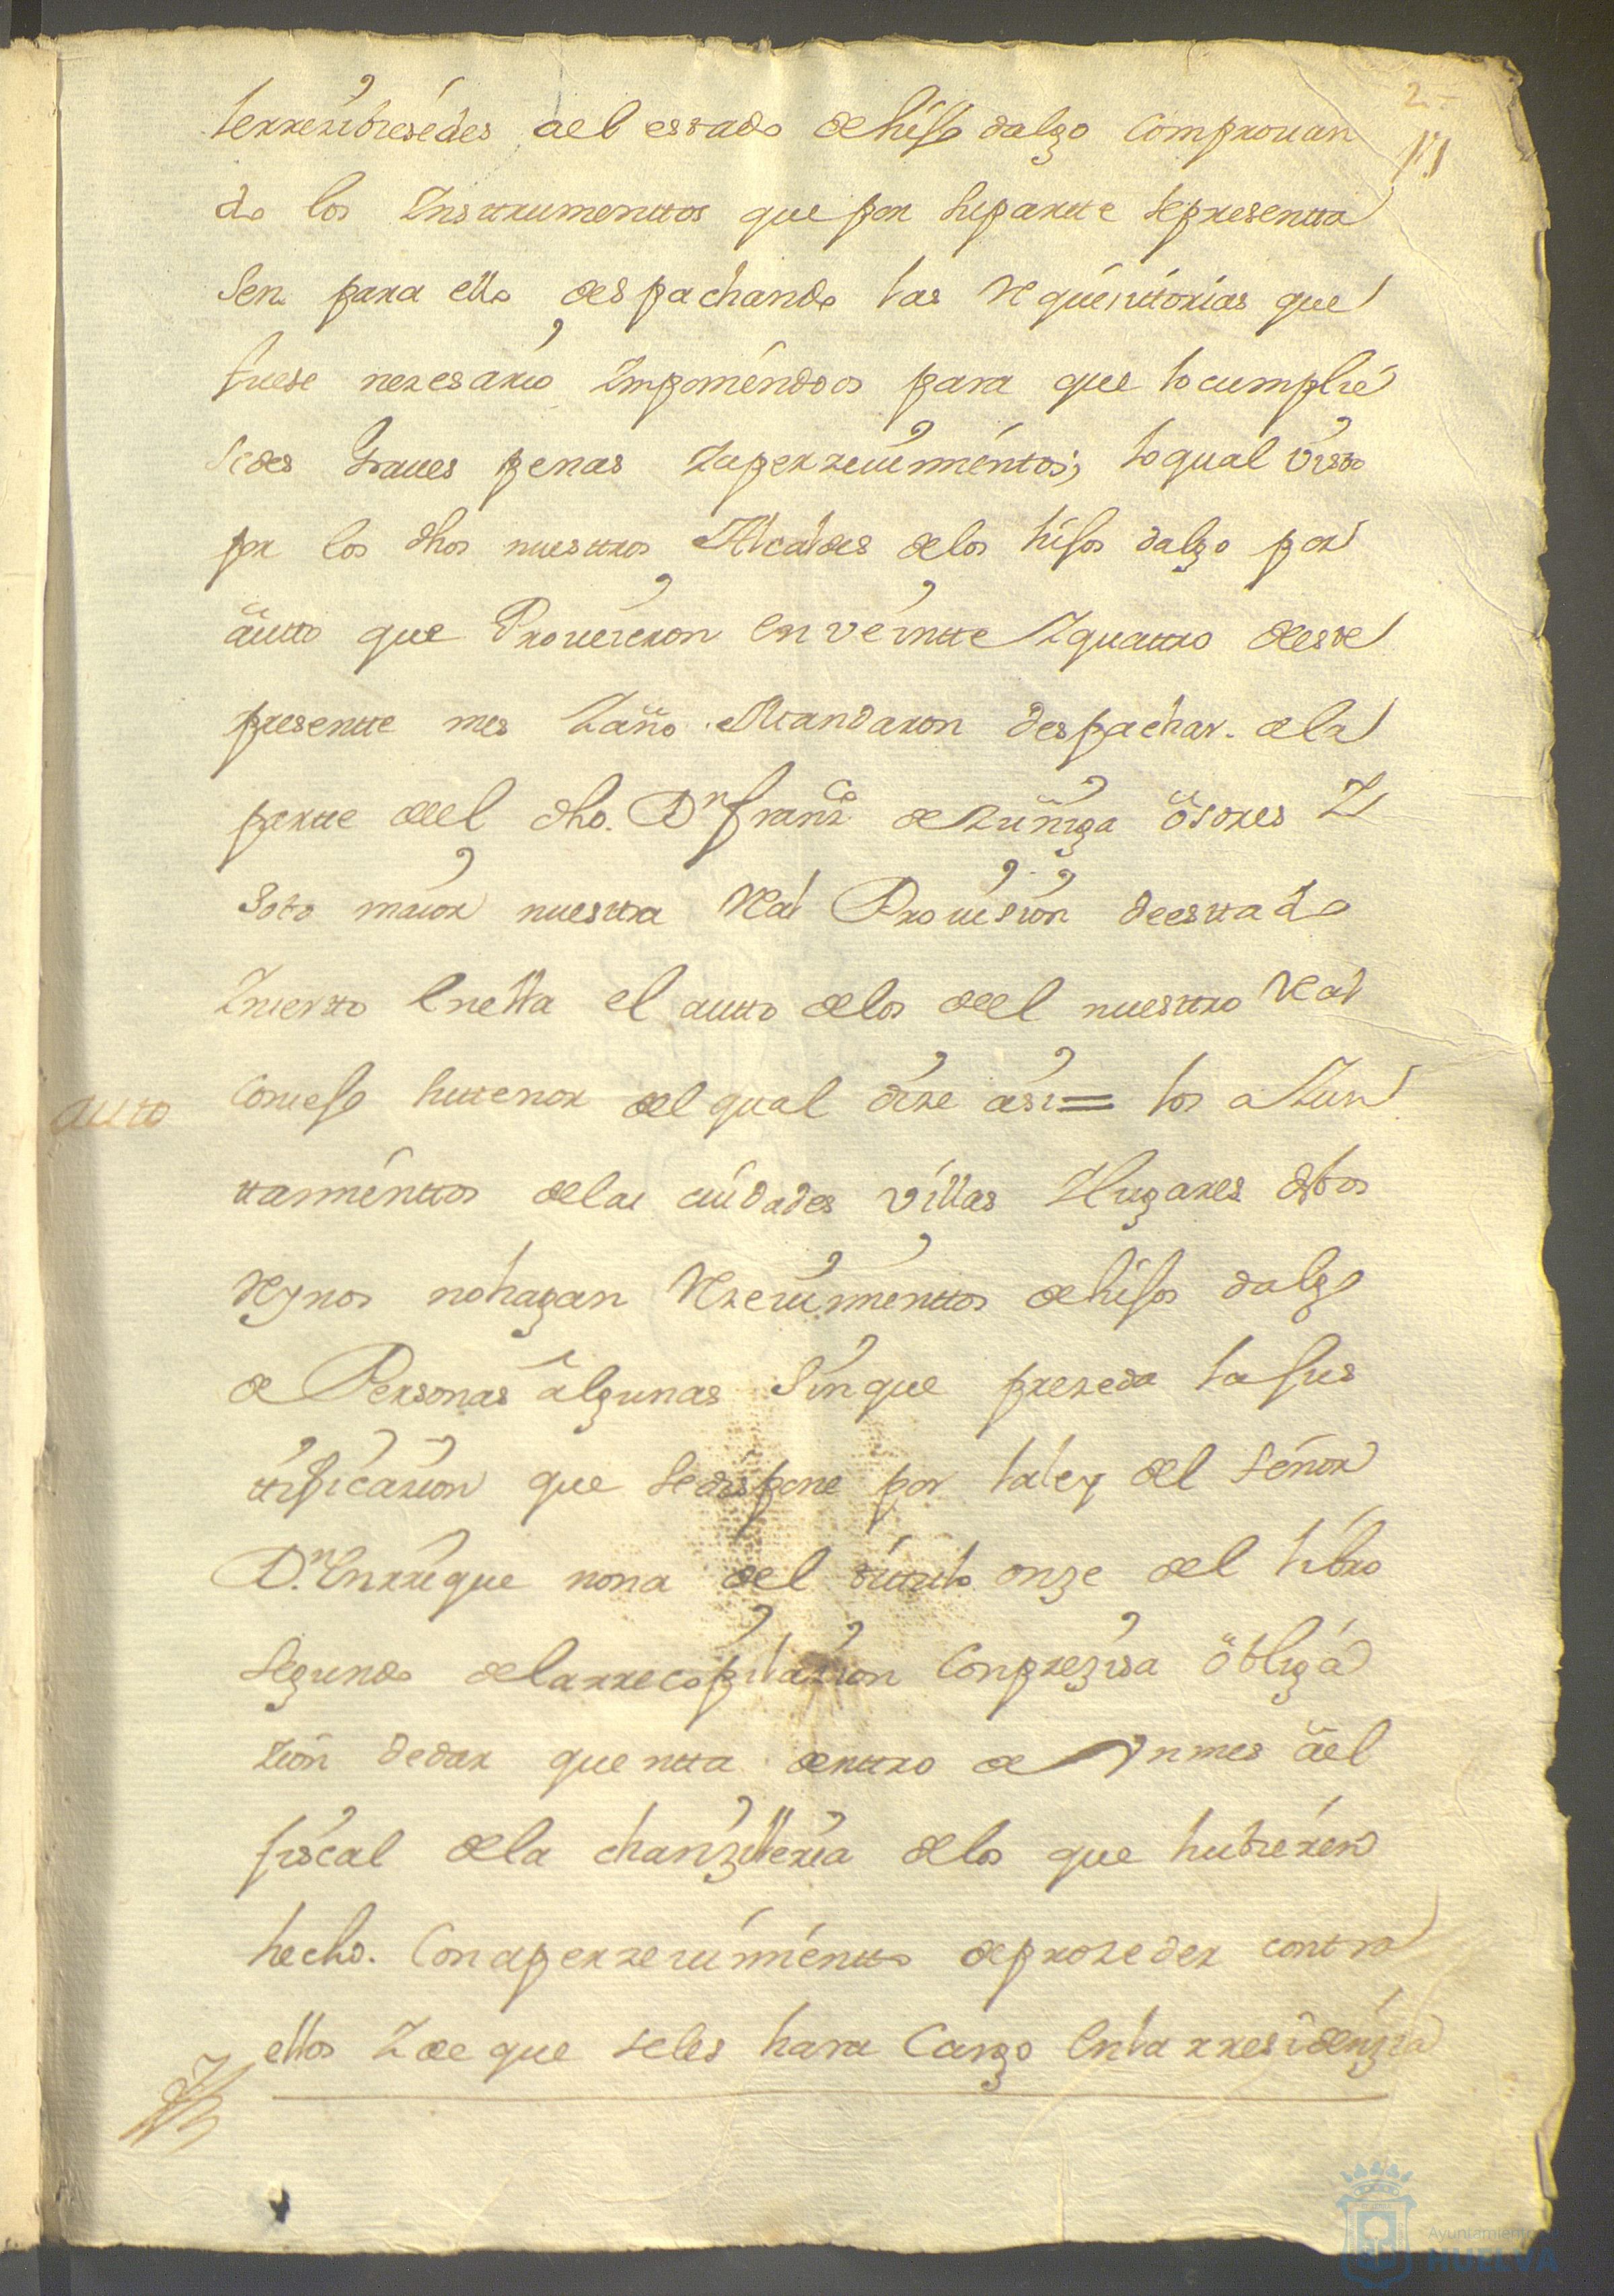 2
le rrezibiesedes del estado de hijo dalgo comprouan
do los Instrumenttos que por su partte se presentta
sen para ello despachando las Requisittorias que
fuese nezesario Imponiendoos para que lo cumplie
sedes Graues penas Y aperzeuimientos, lo qual visto
por los dhos nuestros Alcaldes de los hijos dalgo por
autto que Proueieron en veintte Y quattro deeste
presentte mes Y año Mandaron despachar a la
partte deel dho. Dn franco de Zuñiga osores Y
Soto maior nuestra Real Prouision de estado
Inserto en ella el autto de los deel nuestro Real
auto
Consejo su tenor del qual dize asi = los aYun
ttamienttos de las ciudades villas Y lugares destos
Reynos no hagan Rezeuimienttos de hijos dalgo
de Personas algunas Sin que prezeda la Jus
ttificazion que se dispone por la ley del señor
Dn. Enrrique nona del titulo onze del libro
Segundo de la rrecopilazion Con preziza obliga
zion de dar quentta dentro de Un mes ael
fiscal de la chanzilleria de los que hubieren
hecho. Con aperzeuimientto de prozeder contra
ellos Y de que se les hara Cargo en la rresidenzia
Ayuntamiento
HUELVA